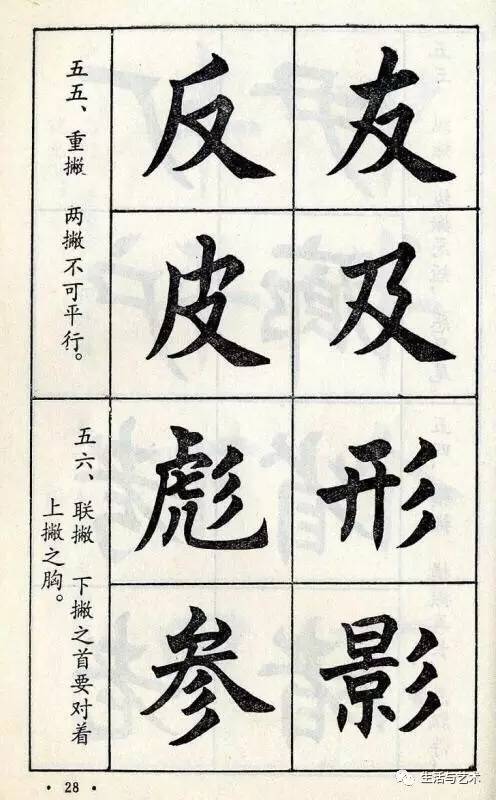 友及
反皮
五五、重撇 两撇不可平行。
形影
彪参
五六、联撇 下撇之首要对着
上撇之胸。
·28·
生活与艺术